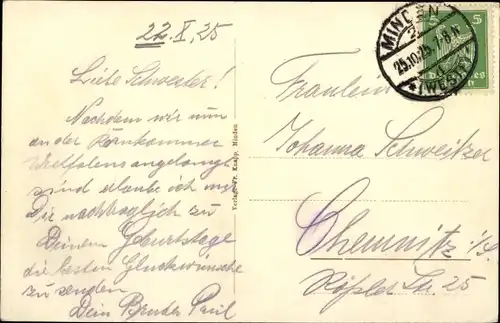 22. X, 25
Liebe Schwester!
Nachdem wir nun
an der Kornkammer
Westfalens angelangt
sind erlaube ich mir
Dir nachträglich zu
Deinem Geburtstage
die besten Glückwünsche
zu senden
Dein Bruder Paul
Verlag: Fr. Knapp, Minden
MINDEN
25.10.25. 7-8 N
* (WESTF)
5 5
Fräulein
Johanna Schweitzer
Chemnitz i/S.
Rößler Str. 25